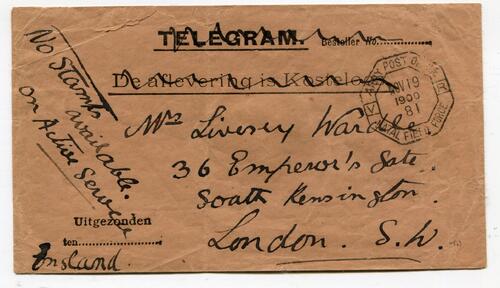 TELEGRAM.
Besteller No.
De aflevering is Kosteloos
No Stamps
available.
on Active Service
ARMY POST OFFICE
NOV 19
1900
81
NATAL FIELD FORCE
Mrs Livesey
36 Emperor's Gate.
South Kensington.
London. S.W.
Uitgezonden
ten
England.